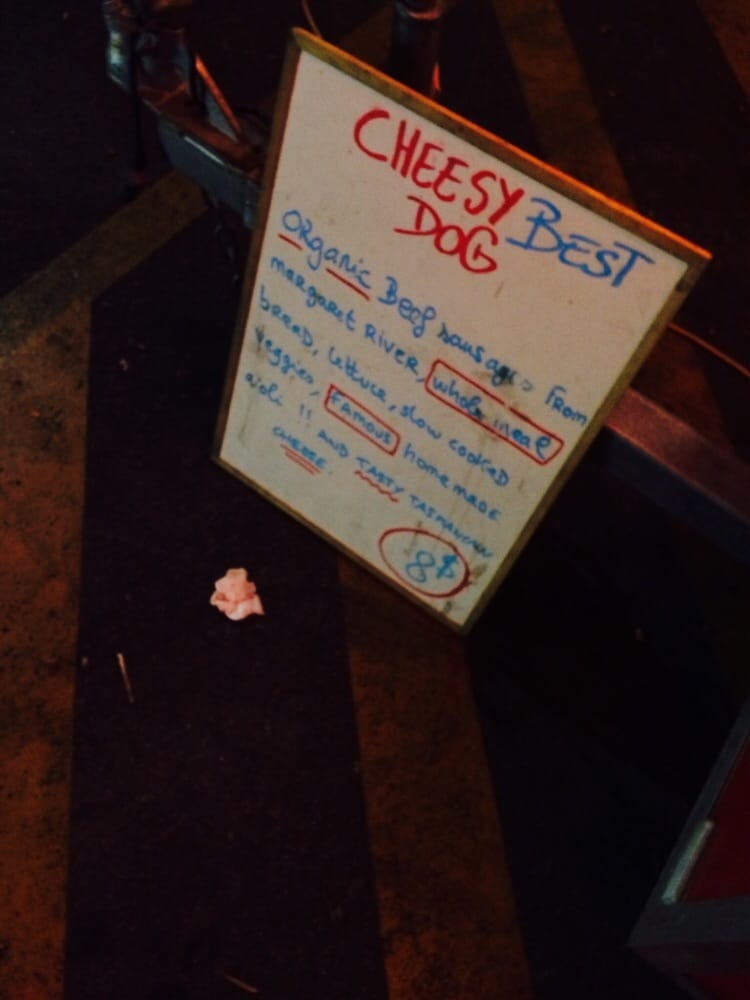 CHEESY BEST
DOG
Organic Beef sausages From
margaret River, whole meal
bread, lettuce, slow cooked
veggies, Famous home made
aioli !! AND TASTY TASMANIAN
CHEESE.
8$